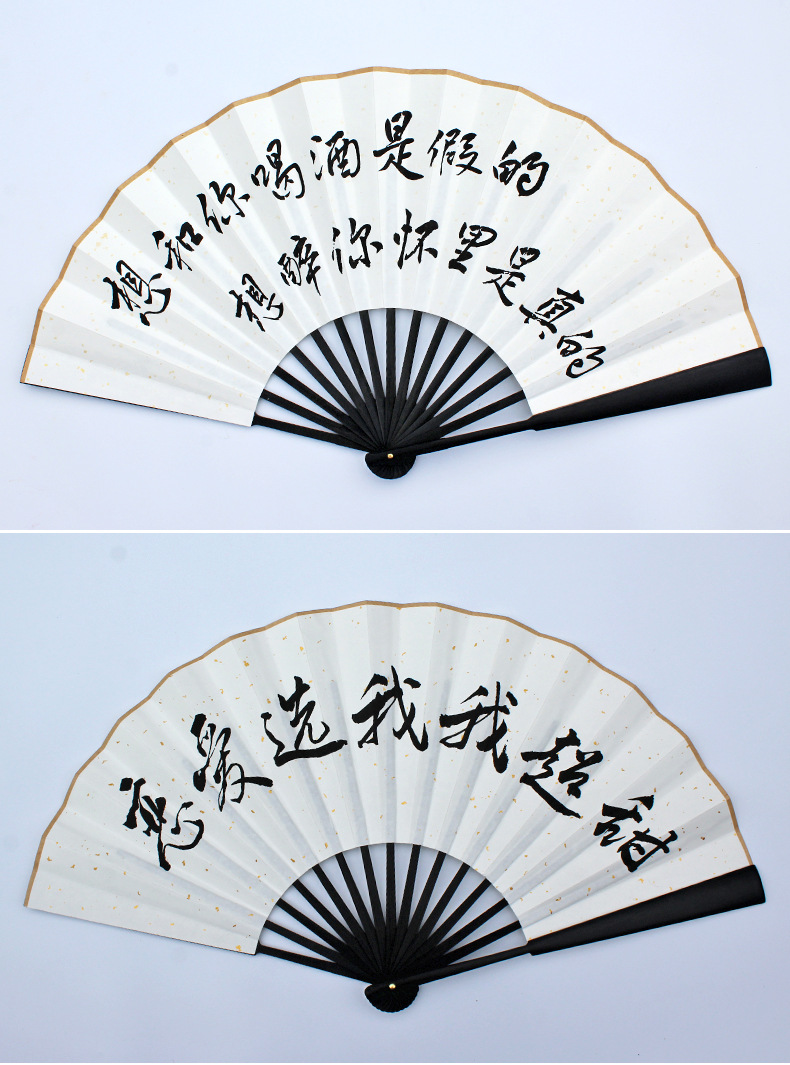 想和你喝酒是假的
想醉你怀里是真的
恶龙选我我超甜